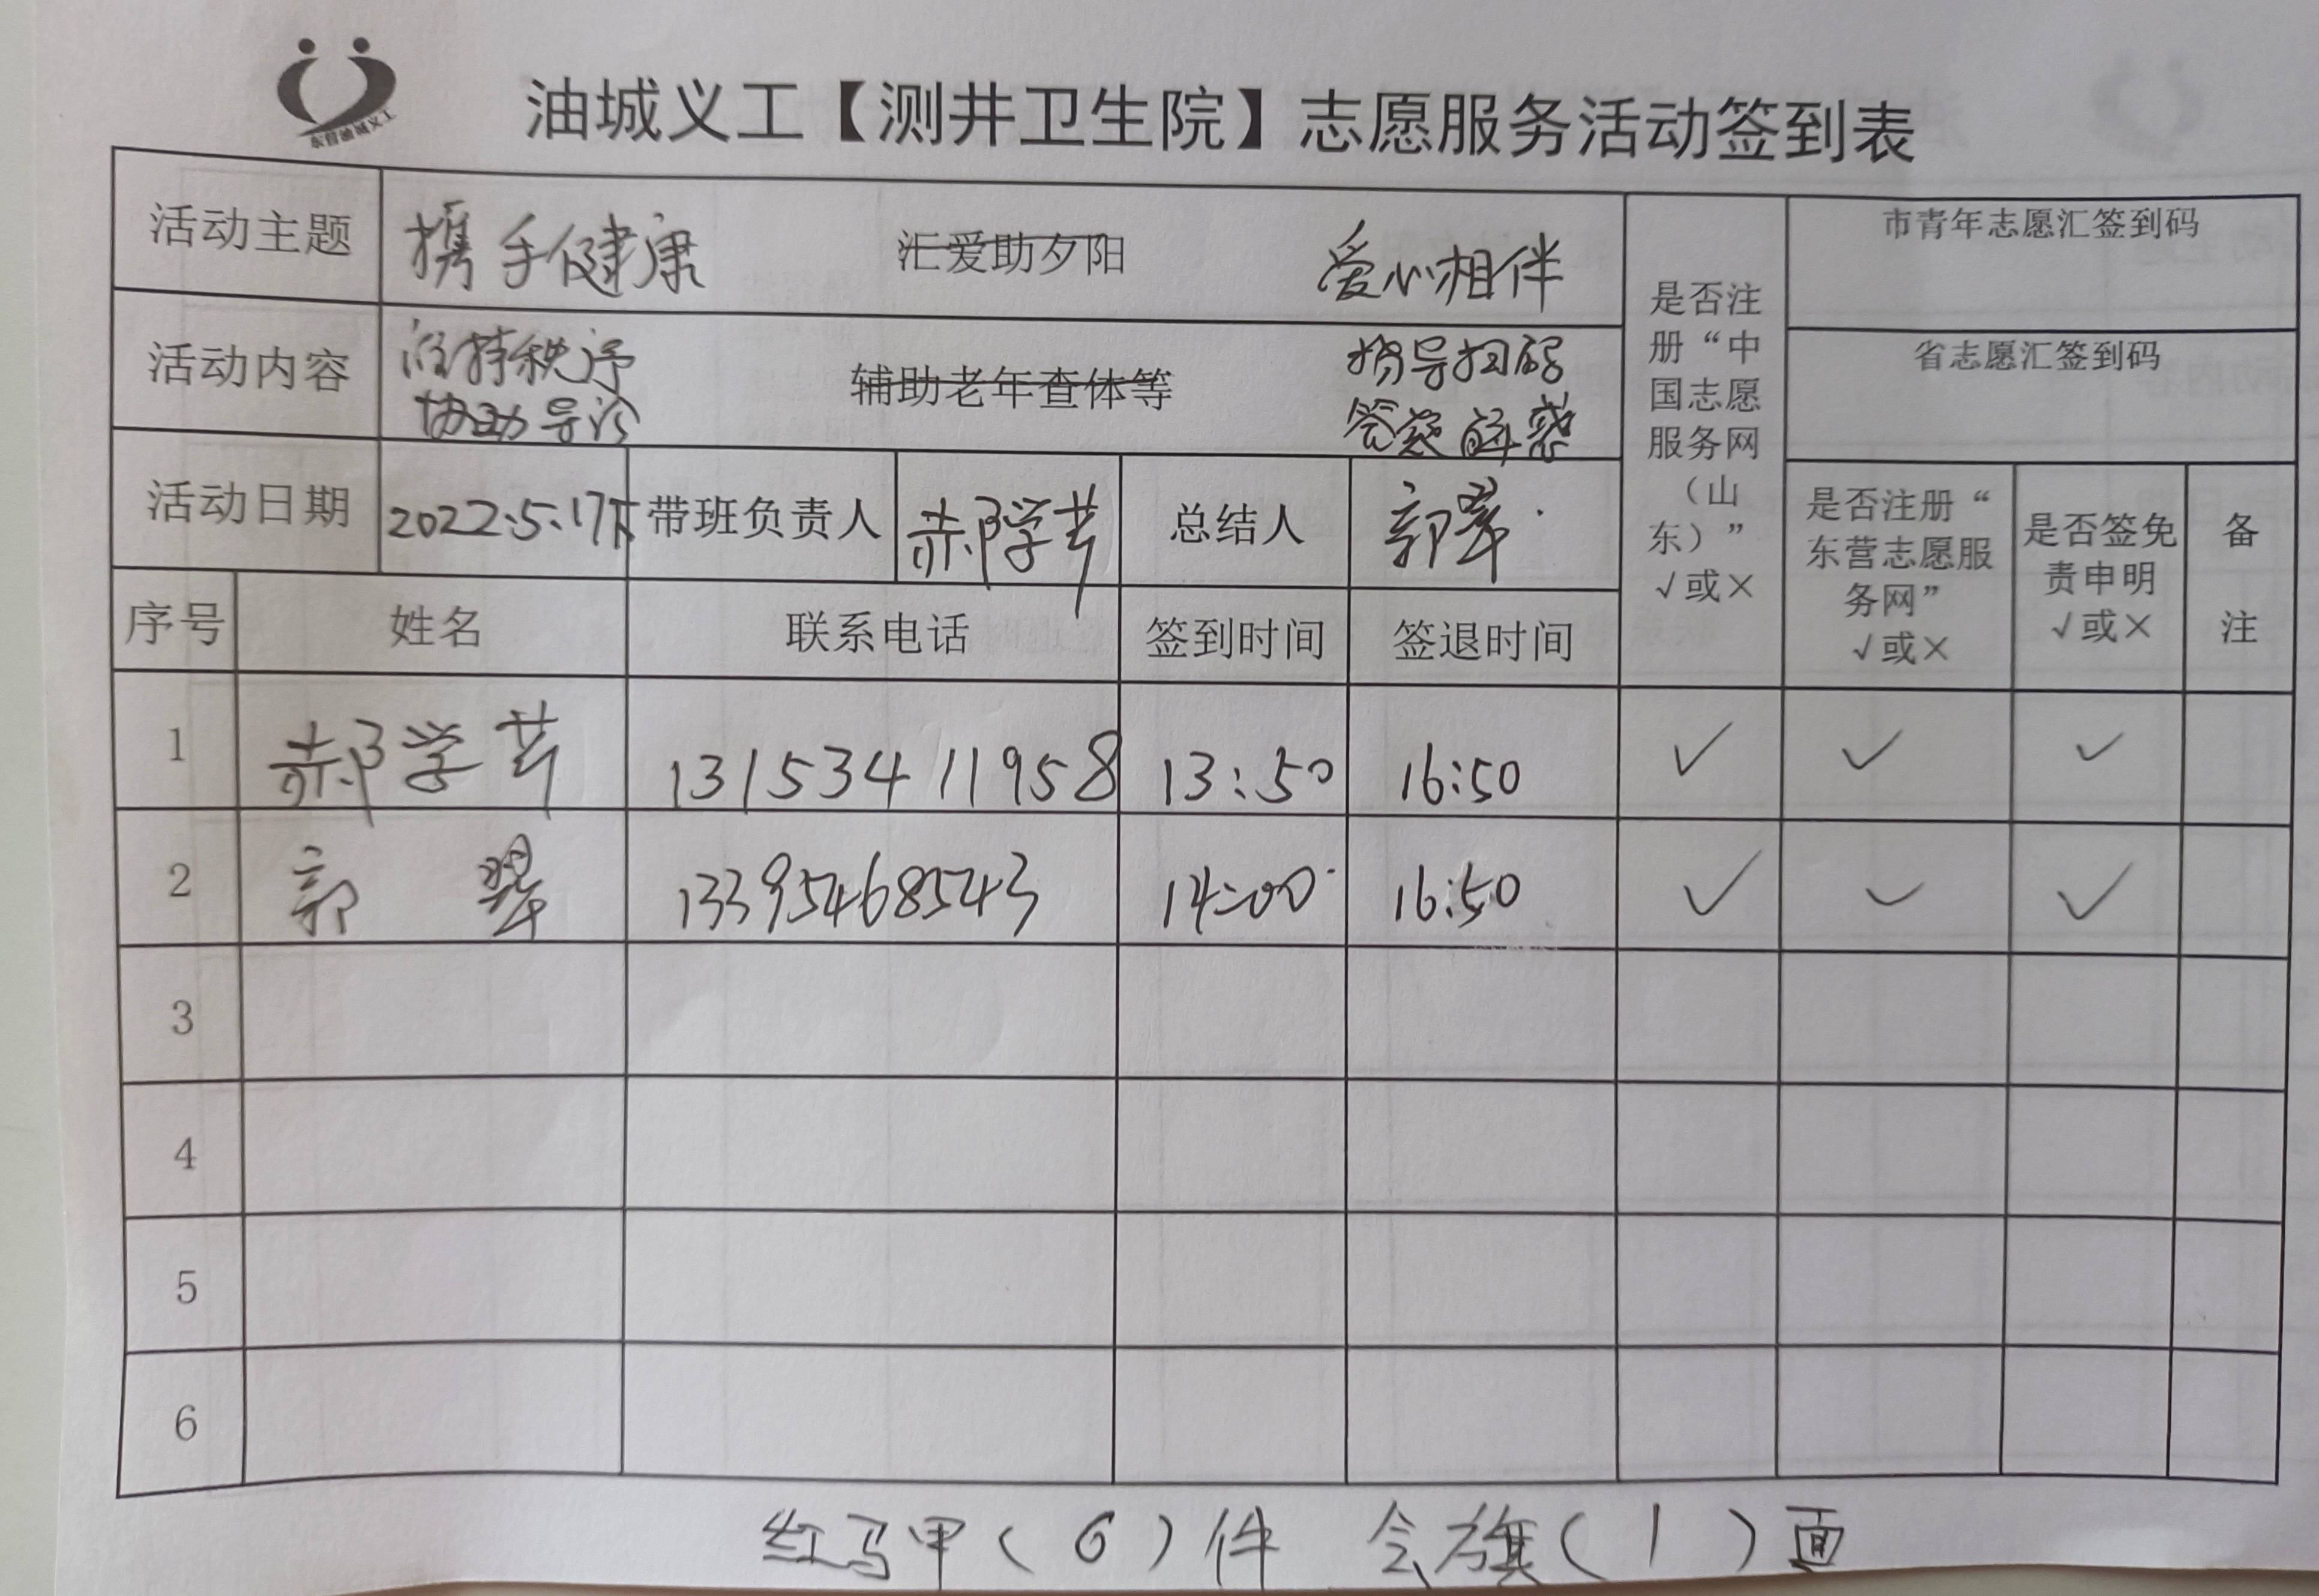 东营油城义工
油城义工【测井卫生院】志愿服务活动签到表
活动主题 携手健康 汇爱助夕阳 爱心相伴
活动内容 维持秩序 协助导诊 辅助老年查体等 指导扫码 答疑解惑
活动日期 2022.5.17下 带班负责人 郝学芸 总结人 郭翠
是否注册“中国志愿服务网（山东）” √或×
市青年志愿汇签到码
省志愿汇签到码
是否注册“东营志愿服务网” √或×
是否签免责申明 √或×
备注
序号 姓名 联系电话 签到时间 签退时间
1 郝学芸 13153411958 13:50 16:50 ✓ ✓ ✓
2 郭翠 13395468543 14:00 16:50 ✓ ✓ ✓
3
4
5
6
红马甲（6）件 会旗（1）面